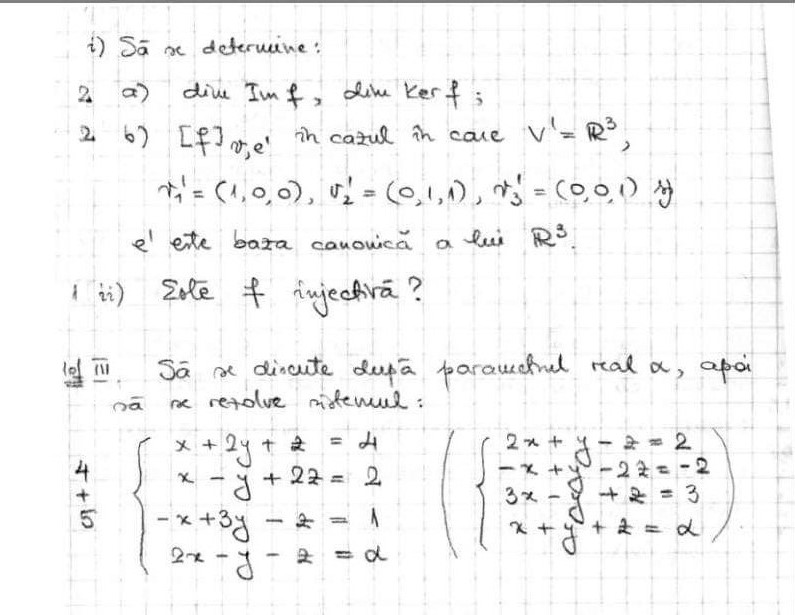 i) Să se determine:
2 a) dim Im f, dim Ker f;
2 b) [f]v,e' în cazul în care V' = ℝ³,
v₁' = (1,0,0), v₂' = (0,1,1), v₃' = (0,0,1) și
e' este baza canonică a lui ℝ³.
1 ii) Este f injectivă?
10p III. Să se discute după parametrul real α, apoi
să se rezolve sistemul:
4 + 5
x + 2y + z = 4
x - y + 2z = 2
-x + 3y - z = 1
2x - y - z = α
2x + y - z = 2
-x + y - 2z = -2
3x - y + z = 3
x + y + z = α